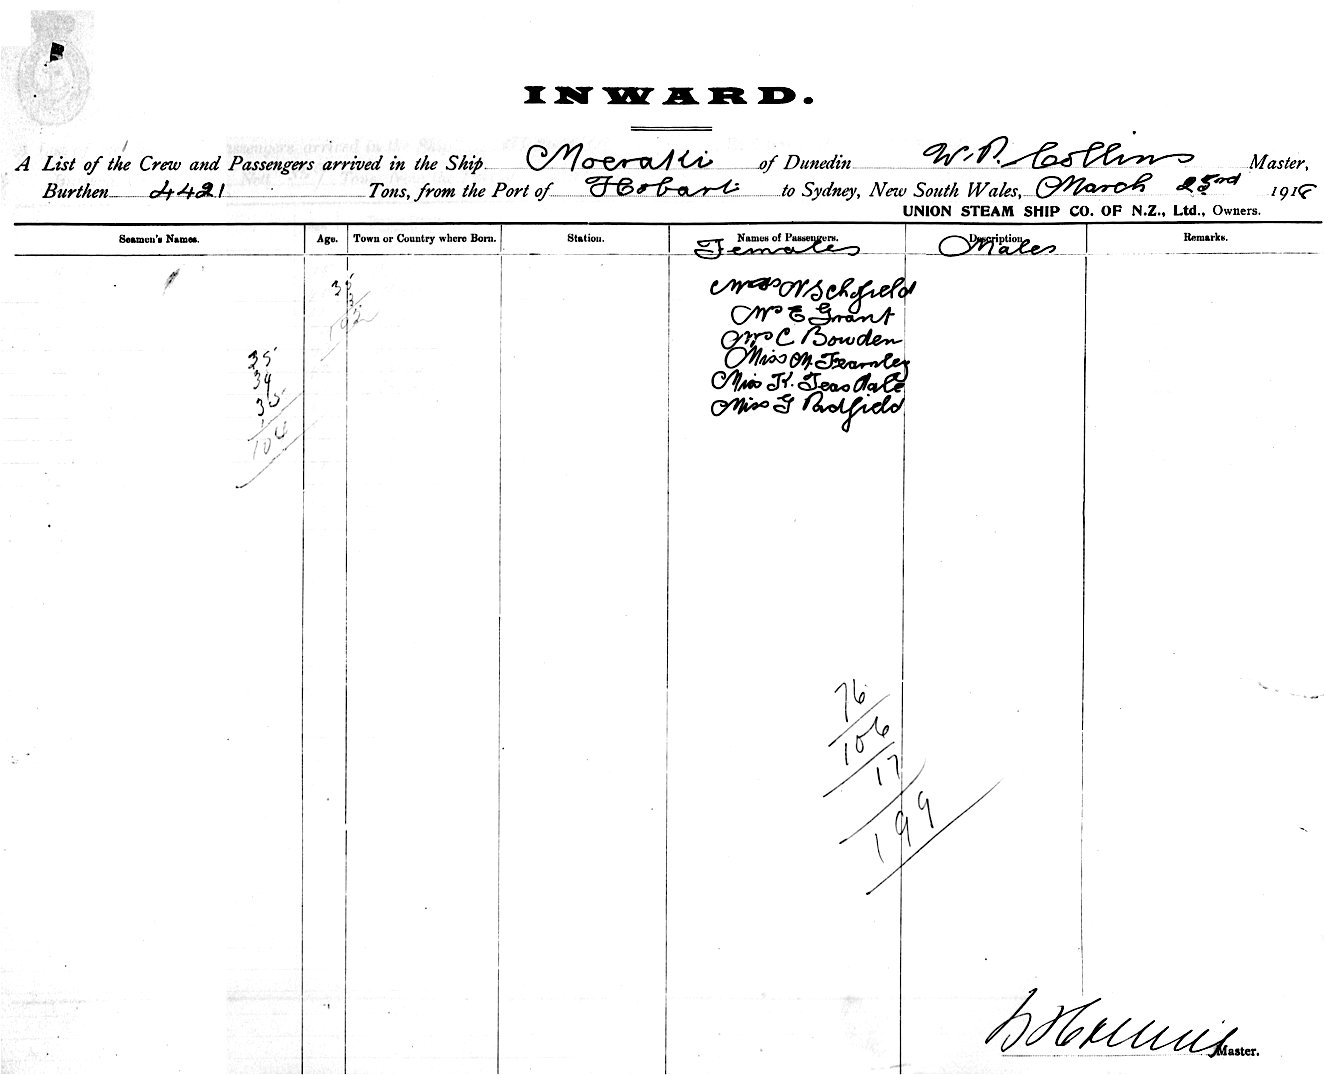 INWARD.
A List of the Crew and Passengers arrived in the Ship Moeraki of Dunedin W. P. Collins Master,
Burthen 4421 Tons, from the Port of Hobart to Sydney, New South Wales, March 23rd 1918
UNION STEAM SHIP CO. OF N.Z., Ltd., Owners.
Seamen's Names. Age. Town or Country where Born. Station. Names of Passengers. Description Remarks.
Females Males
Schofield
Mrs E Grant
Mrs C Bowden
Miss M. Fearnley
Miss K. Teasdale
Miss G Padfield
35
34
35
104
76
106
17
199
Master.